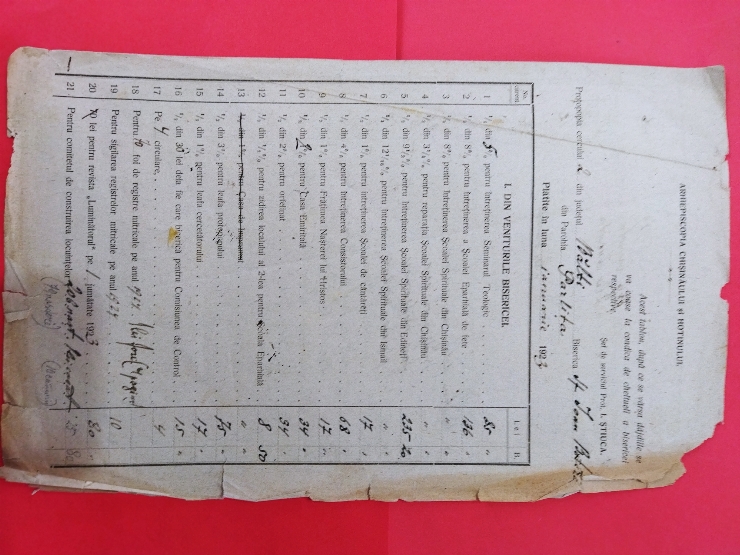 ARHIEPISCOPIA CHIȘINĂULUI ȘI HOTINULUI.
Acest tablou, după ce se vărsa dăjdiile se
va coase la condica de cheltueli a bisericei
respective.
Șef de serviciul Prot. I. ȘTIUCA.
Protopopia cercului 2 din județul Bălți
din Parohia Biserica Sf. Ioan
Plătite în luna ianuarie 1923
No. curent
I. DIN VENITURILE BISERICEI.
Lei B.
1 % din 5% pentru întreținerea Seminarul. Teologic 85 "
2 % din 8% pentru întreținerea a Școalei Eparhială de fete 136 "
3 % din 8% pentru întreținerea Școalei Spirituale din Chișinău " "
4 % din 3½% pentru reparația Școalei Spirituale din Chișinău " "
5 % din pentru întreținerea Școalei Spirituale din Edineți 235 20
6 % din pentru întreținerea Școalei Spirituale din Ismail "
7 % din 1% pentru întreținerea Școalei de cântăreți 17 "
8 % din 4% pentru întreținerea Consistoriului 68 "
9 % din 1% pentru Frățimei Nașterei lui Hristos 17 "
10 % din 2% pentru Casa Emeritală 34 "
11 % din 2% pentru orfelinat 34 "
12 % din ½% pentru zidirea localului al 2-lea pentru școala Eparhială 8 50
13 % din 1% pentru Casa de "
14 % din pentru leafa protopopului 75 "
15 % din 1% pentru leafa cercetătorului 17 "
16 % din 30 lei dela fie care biserică pentru Comisiunea de Control 15 "
17 Pe 4 circulare, 4
18 Pentru foi de registre mitricale pe anul 1924
19 Pentru sigilarea registrelor mitricale pe anul 1924 10
20 lei pentru revista „Luminătorul" pe 1 jumătate 1923 80 "
21 Pentru comitetul de construirea locuințelor